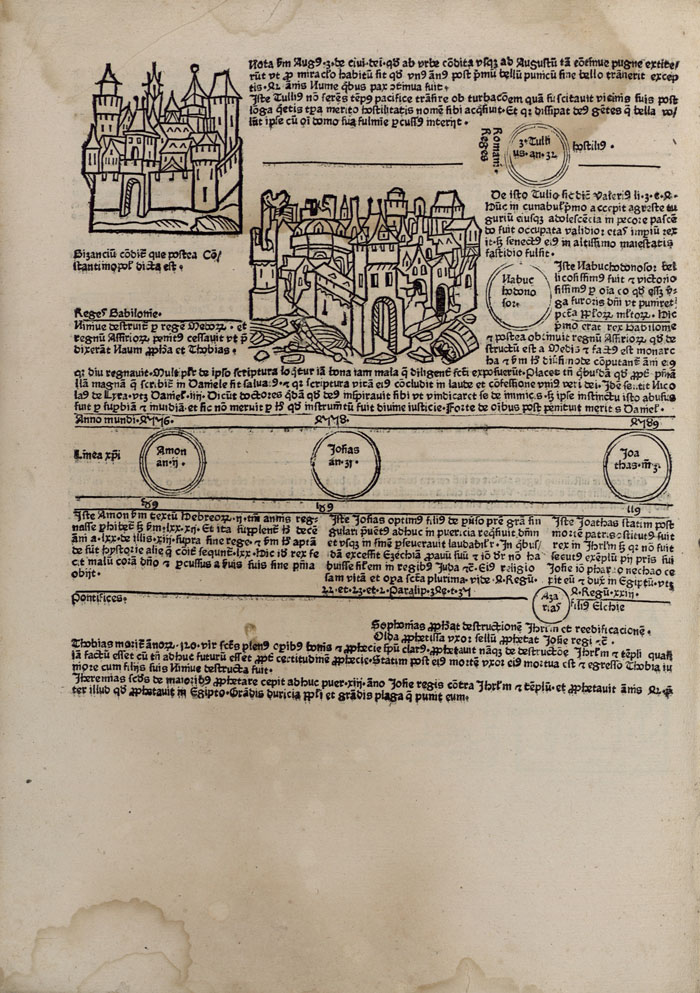 Nota ẜm Augꝰ.3.de ciui.dei.qđ ab vrbe cōdita vsqꝫ ab Augustū tā cōtinue pugne extite/
rūt vt ꝓ miraclo habitū sit qđ vnꝰ ānꝰ post pͥmū bellū punicū sine bello trāsierit excep
tis. annis Nume qͥbus pax cōtinua fuit.
Iste Tulliꝰ nō ferēs tēpꝰ pacifice trāsire ob turbacōem quā suscitauit vicinis suis post
lōga qͥetis tꝑa merito hostilitatis nomē sibi acqͥsiuit. Et qꝛ dissipat deꝰ gētes q̄ bella vo/
lūt ipse cū oī domo sua fulmīe ꝑcussꝰ interijt.
Romani
Reges
3ꝰ Tulli
us.an.32
hostiliꝰ.
De isto Tulio sic dic̄ Valeriꝰ li.3.c.4.
Huiꝰ in cunabul pͥmo accepit agreste tu
guriū eiusqꝫ adolescēcia in pecore pascē
do fuit occupata validior etas impiū rex
it ⁊ senectꝰ eiꝰ in altissimo maiestatis
fastidio fulsit.
Bizanciū cōdit̄ que postea Cō/
stantinopol dicta est.
Nabuc
hodono
sor.
Iste Nabuchodonosor bel
licosissimꝰ fuit ⁊ victorio
sissimꝰ ꝑ oīa eo qđ esset vir
ga furoris dn̄i vt puniret
pctā ppl'oꝝ mltoꝝ. Hic
pͥmo erat rex babilonie
⁊ postea obtinuit regnū Assirioꝝ qđ de
structū est a Medis ⁊ factꝰ est monarc
ha
Regeſ Babilonie.
Niniue destruit̄ ꝑ regē Medoꝝ. et
regnū Assirioꝝ penitꝰ cessauit vt p̄
dixerāt Naum ꝓpha et Thobias.
qꝛ diu regnauit. Mult ꝓpt̄ de ipso scriptura loqͥtur iā bona iam mala q̄ diligent̄ scti exposuerūt.
llā magnā q̄ scribit̄ in Daniele fit saluatꝰ. ⁊ qꝛ scriptura vitā eiꝰ cōcludit in laude et cōfessione vniꝰ veri dei. Idē sentit Nico
laꝰ de Lyra. vt Daniel.iiij. Dicūt doctores qđā qđ deꝰ inspirauit sibi vt vindicaret se de inimicis ipse instinctu isto abusus
fuit ꝑ supbiā ⁊ inuidiā et sic nō meruit instrumtū fuit diuine iusticie. Forte de oībus post penituit merit̄ Daniel.
Anno mundi.4556.
4558.
4589
Linea xp̄i
Amon
an.ij.
Iosias
an.31.
Ioa
thas.m̄.3.
Iste Amon ẜm textū Hebreoꝝ.ij.tm̄ annis reg/
nasse phibet̄ ẜm.lxx.xij. Et ita supplent̄ decē
āni a.lxx.de illis.xij. supra sine rege.
de fūt hystorie alie q̄ cōit̄ sequnt̄.lxx. Hic rex fe
cit malū corā dn̄o ⁊ ꝑcussus a suis sine pn̄ia
obijt.
Iste Iosias optimꝰ filiꝰ de pͥuso pre grā sin
guları puētꝰ adhuc in puericia reqͥsiuit dn̄m
et vsqꝫ in finē ꝑseuerauit laudabilr̄. In qͥbus/
dā excessit Ezechiā pauū suū ⁊ iō dr̄ nō ha
buisse silem in regibꝰ Iuda. Eiꝰ religio
sam vitā et oꝑa sctā plurima. vide.4.Regū.
22.et.23.et.2.Paralip.34.
Iste Ioathas statim post
mortē patris cōstitutꝰ fuit
rex in Ihrlm̄ qꝛ nō fuit
secutꝰ exēplū pij pris sui
Iosie iō pharao nechao ce
pit eū ⁊ duxit in Egiptū. vt
4.Regū.xxiij.
Pontifices.
Aza
rias
filiꝰ Elchie
Sophonias ꝓphat̄ destructionē Ihrlm̄ et reedificacionē.
Olda ꝓphetissa vxor sellū ꝓphetat Iosie regi.
Thobias morit̄ ānoꝝ.120. vir sctꝰ plenꝰ opibꝰ bonis ⁊ ꝓphecie spū clarꝰ. ꝓphetauit nāqꝫ de destructōe Ihrlm̄ ⁊ tēpli quasi
iā factū esset cū tn̄ adhuc futurū esset ꝓpt̄ certitudinē ꝓphecie. Statim post eiꝰ mortē vxor eiꝰ mortua est ⁊ egressꝰ Thobia iu
niore cum filijs suis Niniue destructa fuit.
Iheremias sctꝰ de maioribꝰ ꝓphetare cepit adhuc puer.xiij.āno Iosie regis cōtra Ihrlm̄ ⁊ tēplū. et ꝓphetauit ānis
ter illud qđ ꝓphetauit in Egipto. Grādis duricia ppl'i et grādis plaga q̄ punit eum.